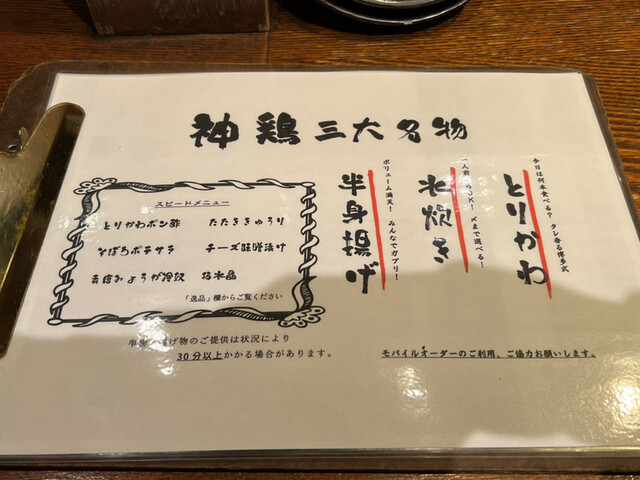 神鶏三大名物
今日は何本食べる？ タレ香る博多式
とりかわ
一人前からOK！〆まで選べる！
水炊き
ボリューム満天！ みんなでガブリ！
半身揚げ
スピードメニュー
とりかわポン酢 たたききゅうり
そぼろポテサラ チーズ味噌漬け
青唐みょうが冷奴 梅水晶
「逸品」欄からご覧ください
串物、揚げ物のご提供は状況により
30分以上かかる場合があります。
モバイルオーダーのご利用、ご協力お願いします。